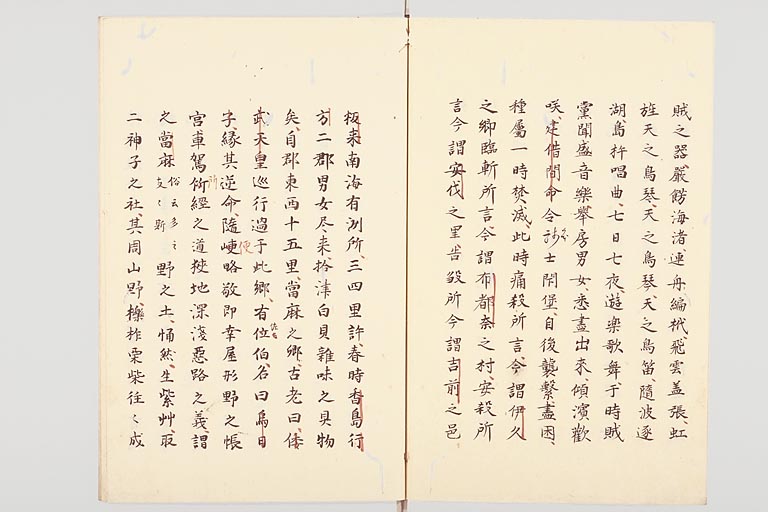 賊之器嚴餝海渚連舟編栰飛雲盖張虹
旌天之鳥琴天之鳥琴天之鳥笛隨波逐
湖鳥杵唱曲七日七夜遊楽歌舞于時賊
黨聞盛音樂舉房男女悉盡出來傾濱歡
咲建借間命令士閇堡自後襲繫盡囚
種屬一時焚滅此時痛殺所言今謂伊久
之郷臨斬所言今謂布都奈之村安殺所
言今謂安伐之里吉殺所今謂吉前之邑
板来南海有洲所三四里許春時香島行
方二郡男女尽来拾津白貝雜味之貝物
矣自郡東西十五里當麻之郷古老曰倭
武天皇巡行過于此郷有位伯名曰鳥日
子縁其逆命隨便略敬即幸屋形野之帳
宮車駕所經之道狹地深淺悪路之義謂
之當麻俗云多々支々斯野之土埇然生紫艸取
二神子之社其周山野櫟柞栗柴往々成